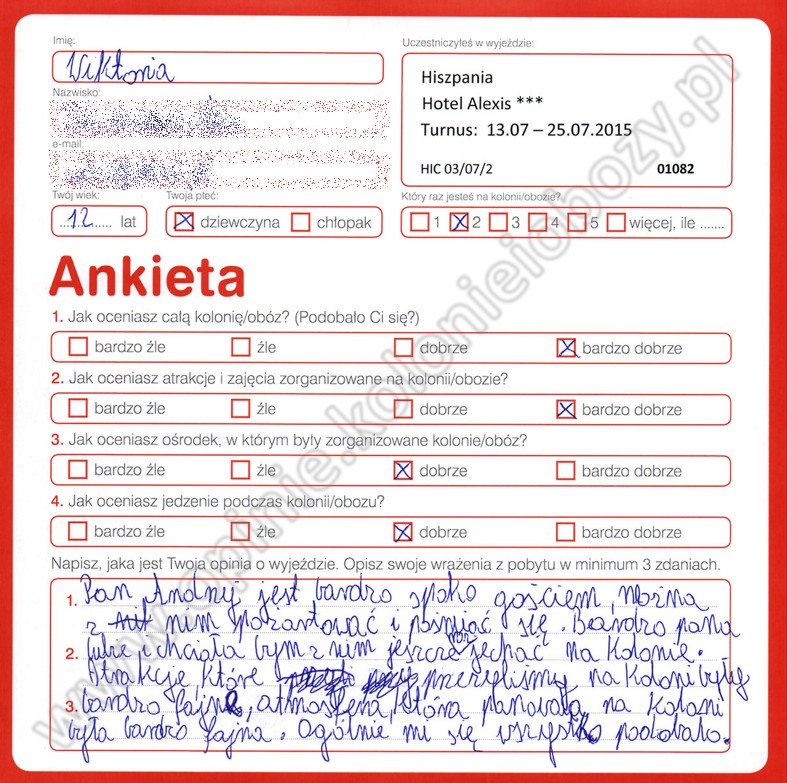 Imię:
Wiktoria
Uczestniczyłeś w wyjeździe:
Hiszpania
Hotel Alexis ***
Turnus: 13.07 – 25.07.2015
HIC 03/07/2 01082
Nazwisko:
e-mail:
Twój wiek:
12 lat
Twoja płeć:
dziewczyna chłopak
Który raz jesteś na kolonii/obozie?
1 2 3 4 5 więcej, ile .......
Ankieta
1. Jak oceniasz całą kolonię/obóz? (Podobało Ci się?)
bardzo źle źle dobrze bardzo dobrze
2. Jak oceniasz atrakcje i zajęcia zorganizowane na kolonii/obozie?
bardzo źle źle dobrze bardzo dobrze
3. Jak oceniasz ośrodek, w którym byly zorganizowane kolonie/obóz?
bardzo źle źle dobrze bardzo dobrze
4. Jak oceniasz jedzenie podczas kolonii/obozu?
bardzo źle źle dobrze bardzo dobrze
Napisz, jaka jest Twoja opinia o wyjeździe. Opisz swoje wrażenia z pobytu w minimum 3 zdaniach.
1. Pan Andrzej jest bardzo spoko gościem, można
z nim pożartować i pośmiać się. Bardzo pana
2. lubię i chciała bym z nim jeszcze raz jechać na kolonie.
Atrakcje, które przeżyliśmy na koloni były
3. bardzo fajne, atmosfera, która panowała na koloni
była bardzo fajna. Ogólnie mi się wszystko podobało.
www.opinie.kolonieiobozy.pl